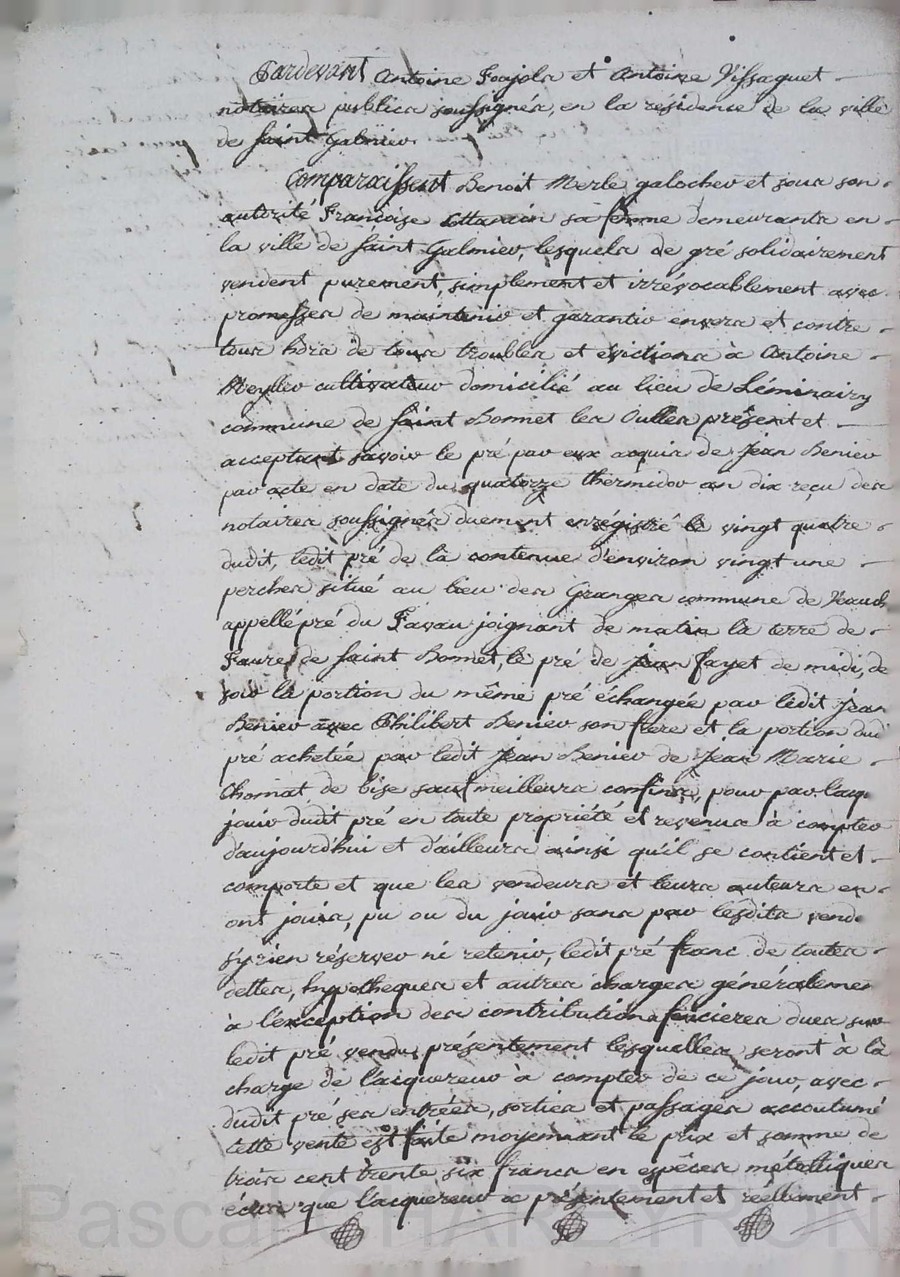 Pardevant Antoine Foujols et Antoine Vissaguet
notaires publics soussignés, en la résidence de la ville
de Saint Galmier.
Comparoissent Benoit Merle galocher et sous son
autorité Françoise sa femme demeurants en
la ville de Saint Galmier, lesquels de gré solidairement
vendent purement, simplement et irrévocablement avec
promesses de maintenir et garantir envers et contre
tous hors de tous troubles et évictions à Antoine
Meylier cultivateur domicilié au lieu de Léminairy
commune de Saint Bonnet les Oulles présent et
acceptant savoir le pré par eux acquis de Jean Benier
par acte en date du quatorze thermidor an dix reçu des
notaires soussignés duement enrégistré le vingt quatre
dudit, ledit pré de la contenue d'environ vingt une
perches situé au lieu des Granges commune de Veauch
appellé pré du Favau joignant de matin la terre de
Faure de Saint Bonnet, le pré de Jean Fayet de midi, de
soir la portion du même pré échangée par ledit Jean
Benier avec Philibert Benier son frere et la portion dud
pré achetée par ledit Jean Benier de Jean Marie
Chomat de bise sauf meilleurs confins, pour par lacq
jouir dudit pré en toute propriété et revenus à compter
d'aujourd'hui et d'ailleurs ainsi qu'il se contient et
comporte et que les vendeurs et leurs auteurs en
ont jouis, pu ou du jouir sans par lesdits vend
s'y rien réserver ni retenir, ledit pré franc de toutes
dettes, hypotheques et autres charges généralemen
à l'exception des contributions foncieres dues sur
ledit pré vendu présentement lesquelles seront à la
charge de l'acquereur à compter de ce jour, avec
dudit pré ses entrées, sorties et passages accoutumé
cette vente est faite moyennant le prix et somme de
trois cent trente six francs en espêces métalliques
écus que l'acquereur a présentement et réellement
Pascal CHAREYRON